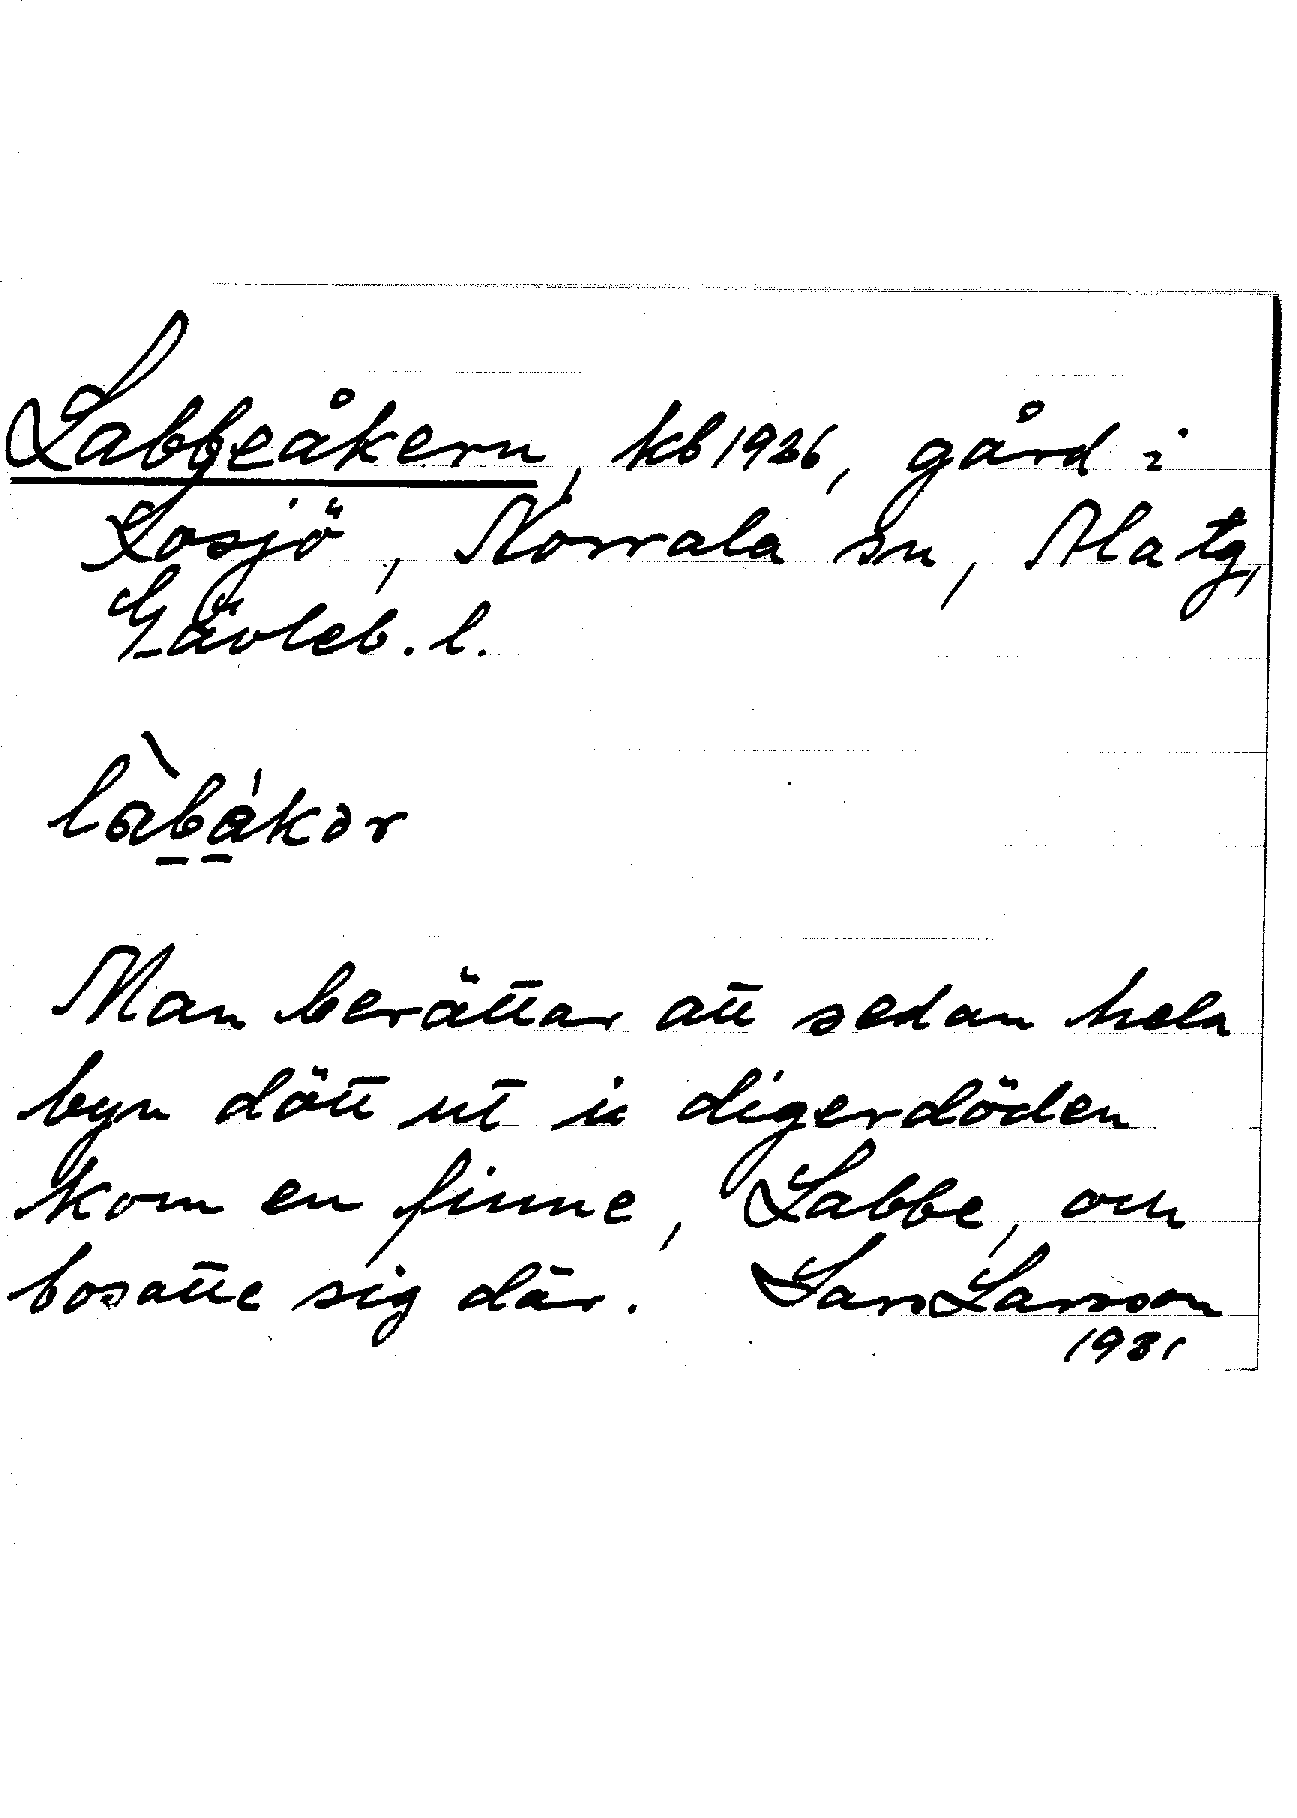 Labbeåkern, kb 1926, gård i
Losjö, Norrala sn, Ala tg,
Gävleb. l.
làbákər
Man berättar att sedan hela
byn dött ut i digerdöden
kom en finne, Labbe, och
bosatte sig där. Lars Larsson
1931